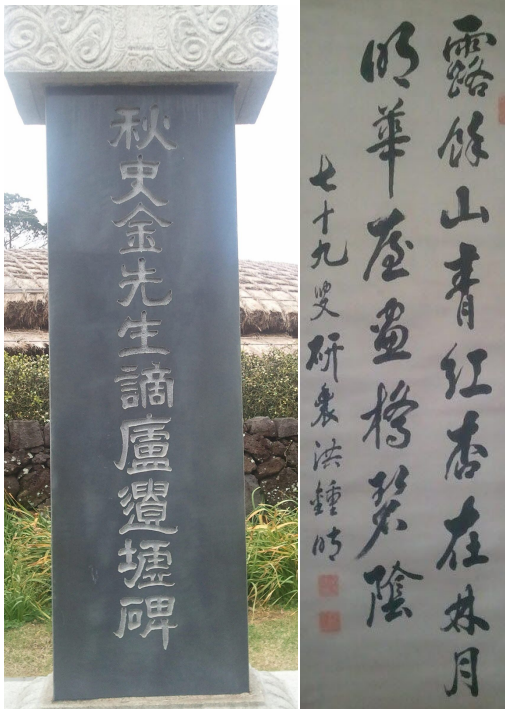 秋史金先生謫廬遺墟碑
露餘山青紅杏在林月
明華屋畫橋碧陰
七十九叟研農洪鍾時